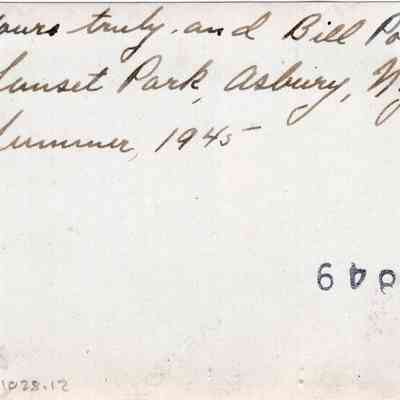 Yours truly and Bill Po
Sunset Park, Asbury, N.J
Summer, 1945
6409
1028.12